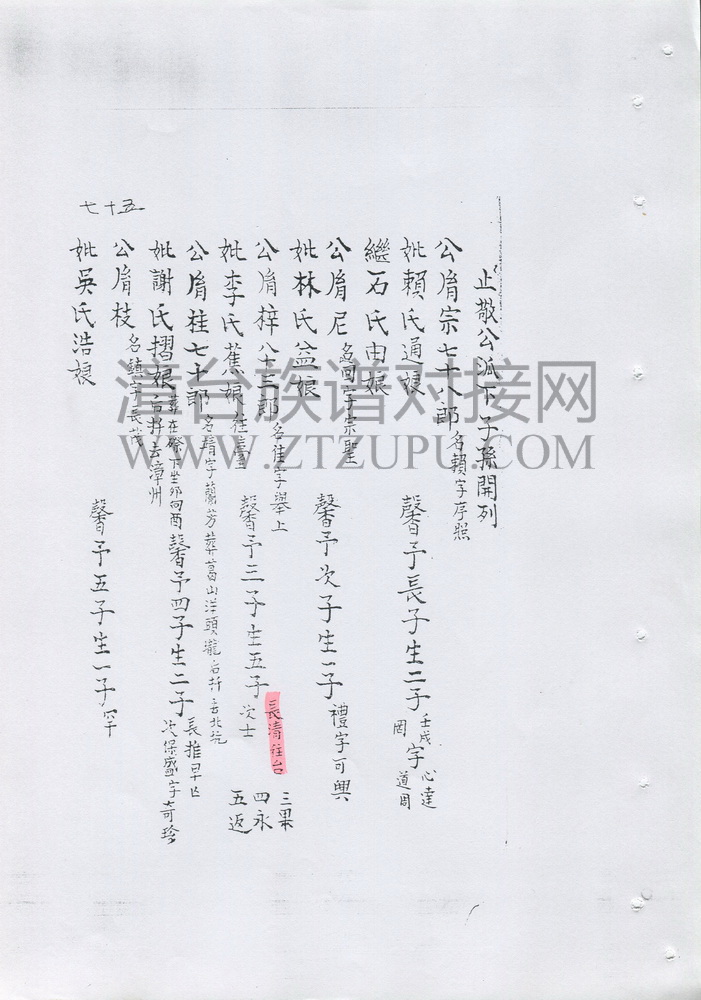 止敬公派下子孫開列
公脩宗七十八郎 名賴字序照
妣賴氏通娘 馨予長子生二子 壬戌 罔 字 心達 道周
繼石氏由娘
公脩尼 名回字宗聖 馨予次子生一子 禮字可興
妣林氏益娘
公脩梓八十三郎 名佳字舉上 馨予三子生五子 長清往台 次士 三果 四永 五返
妣李氏蕉娘 往臺
公脩桂七十郎 名晴字蘭芳葬葛山洋頭瀧后扦去北坑
妣謝氏摺娘 葬在磜下坐卯向酉 后扦去漳州 馨予四子生二子 長推早亡 次保盛字奇珍
公脩枝 名鎮字長茂 馨予五子生一子 罕
妣吳氏浩娘
七十五
漳台族谱对接网
WWW.ZTZUPU.COM